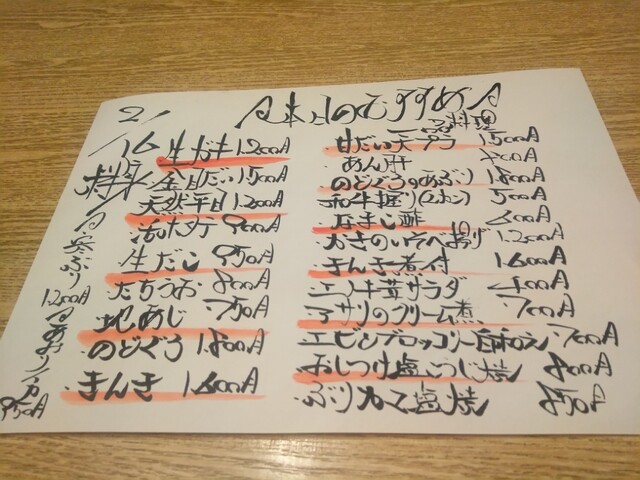 本日のおすすめ
料理
生ガキ 1.200円
金目だい 1.500円
天然平目 1.200円
活ホタテ 900円
生だこ 950円
たちうお 800円
地あじ 750円
のどぐろ 1.800円
きんき 1.600円
甘だい天プラ 1500円
あん肝 800円
のどぐろのあぶり 1.800円
和牛握り(2カン) 500円
なまこ酢 600円
1.200円
きんき煮付 1.600円
エノキ茸サラダ 400円
アサリのクリーム煮 700円
エビとブロッコリー旨和え 700円
おしつけ塩こうじ焼 800円
ぶりカマ塩焼 850円
1200円
950円